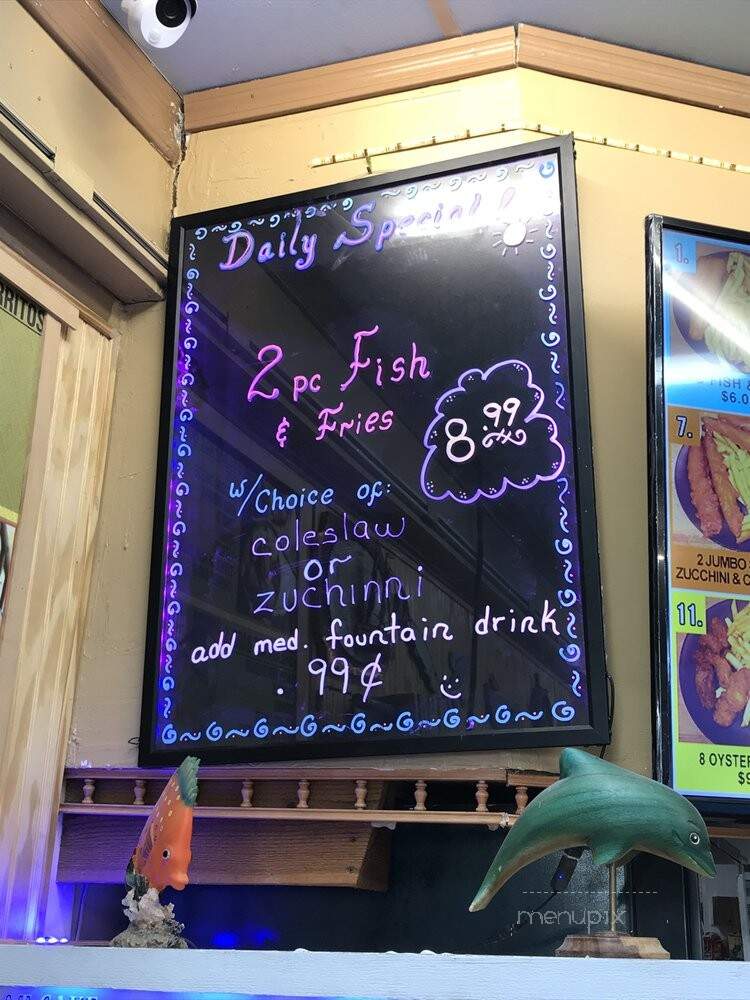 Daily Special!
2 pc Fish
& Fries
8.99
w/Choice of:
coleslaw
or
zuchinni
add med. fountain drink
.99¢
RRITOS
1.
FISH &
$6.0
7.
2 JUMBO
ZUCCHINI & C
11.
8 OYSTER
$9
menupix